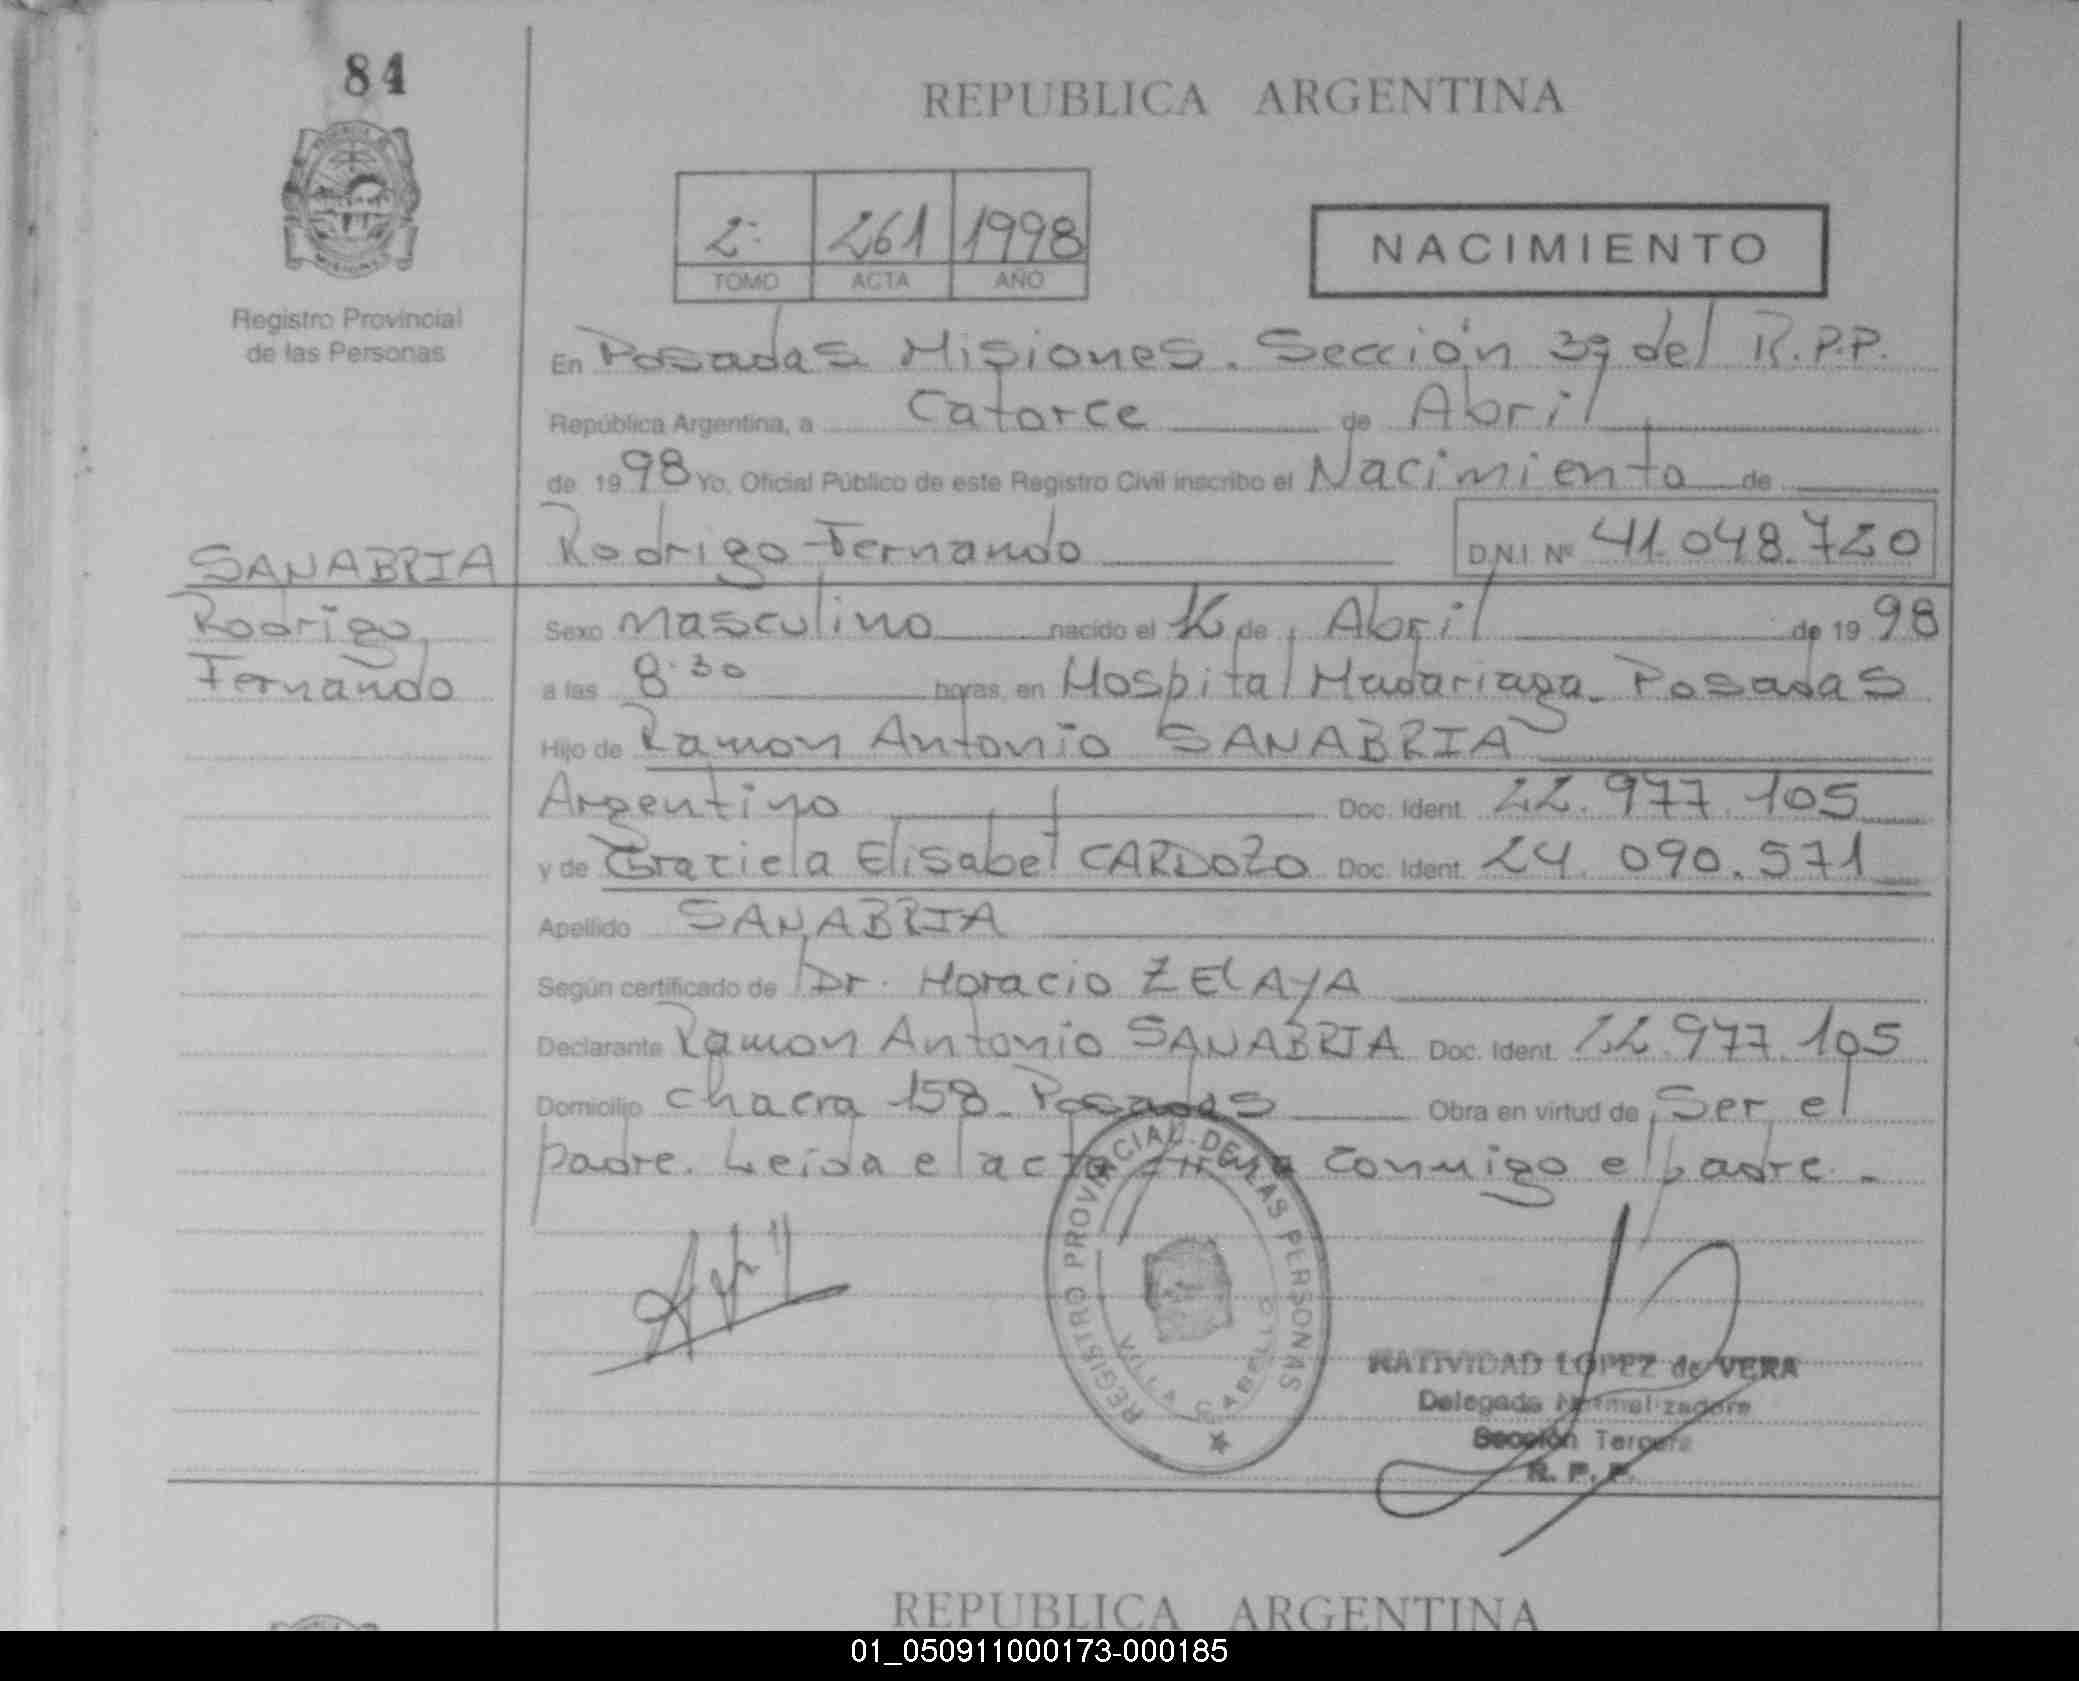 84
REPUBLICA ARGENTINA
2º 261 1998
TOMO ACTA AÑO
NACIMIENTO
MISIONES
Registro Provincial
de las Personas
En Posadas Misiones. Sección 3ª del R.P.P.
República Argentina, a Catorce de Abril
de 1998 Yo, Oficial Público de este Registro Civil inscribo el Nacimiento de
SANABRIA Rodrigo Fernando D.N.I. Nº 41.048.720
Rodrigo Sexo masculino nacido el de Abril de 1998
Fernando a las 8:30 horas, en Hospital Madariaga. Posadas
Hijo de Ramon Antonio SANABRIA
Argentino Doc. Ident. 22.977.105
y de Graciela Elisabet CARDOZO Doc. Ident. 24.090.571
Apellido SANABRIA
Según certificado de Dr. Horacio ZELAYA
Declarante Ramon Antonio SANABRIA Doc. Ident. 22.977.105
Domicilio chacra 158 Posadas Obra en virtud de Ser el
padre. Leida el acta firma conmigo el padre.
REGISTRO PROVINCIAL DE LAS PERSONAS
VILLA CABELLO
NATIVIDAD LOPEZ de VERA
Delegada Normalizadora
Sección Tercera
R. P. P.
REPUBLICA ARGENTINA
01_050911000173-000185